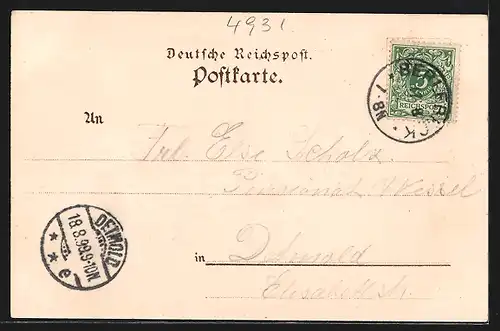 4931
Deutsche Reichspost.
Postkarte.
5
REICHSPOST
BERLEBECK
7-8N
An Frl. Else Scholz
Pensionat Wessel
in Detmold
Elisabethstr.
DETMOLD
18.8.99.9-10N
* * e